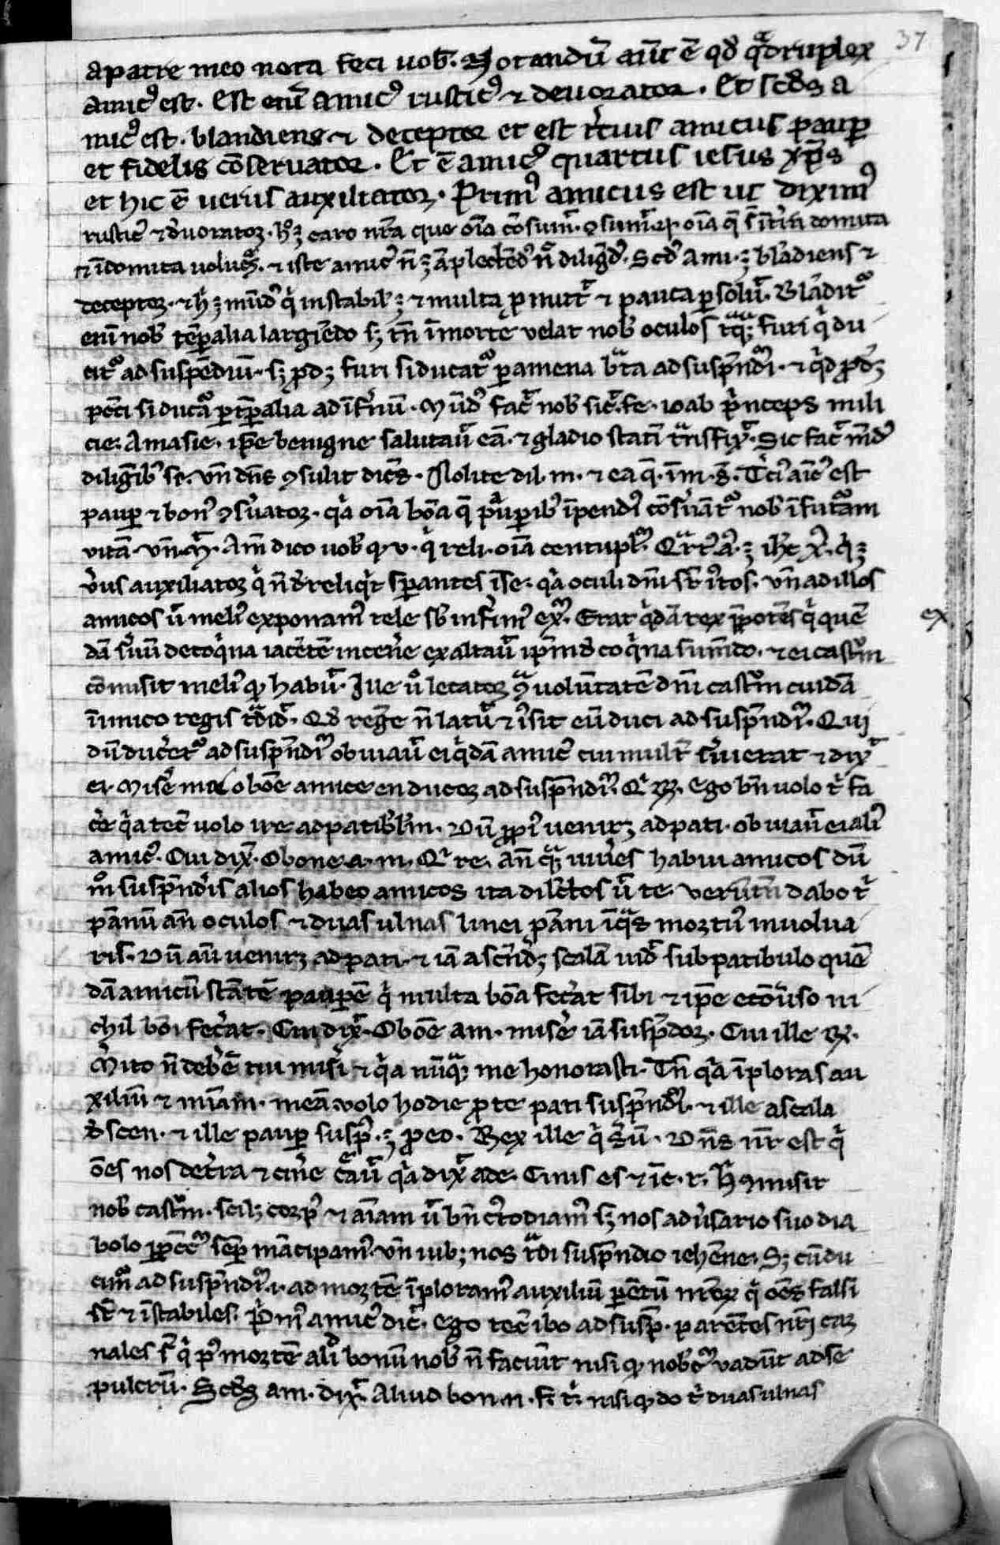 37
a patre meo nota feci uob̅. Notandu̅ aut̅ e̅ qd̅ q̅druplex
amicꝰ est. Est eni̅ amicꝰ rusticꝰ ⁊ deuorator. Et scd̅s a
micꝰ est. blandiens ⁊ deceptor et est t̅cius amicus paup̅
et fidelis co̅seruator. Et e̅ amicꝰ quartus iesus xp̅s
et hic e̅ uerus auxiliator. Primꝰ amicus est ut diximꝰ
rusticꝰ ⁊ d̅uorator. caro nr̅a que o̅ia co̅sumit oi̅a q̅ domita
⁊ i̅domita uoluc̅. ⁊ iste amicꝰ n̅ ꝫ amplecte̅dꝰ n̅ dilige̅dꝰ. Scdꝰ ami. ꝫ bla̅diens ⁊
deceptor. ⁊ h̅ ꝫ mu̅dꝰ q̅ instabil̅ ꝫ ⁊ multa p̅mitt̅ ⁊ pauca p̅soluit. Bla̅dit̅
eni̅ nob̅ te̅p̅alia largie̅do sꝫ i̅ morte velat nob̅ oculos furi q̅ du
cit̅ ad suspe̅diu̅. sꝫ p̅dꝫ furi si ducat̅ p̅ amena p̅ta ad suspe̅nd̅. ⁊ q̅d p̅dꝫ
pcc̅i si ducat̅ p̅ te̅p̅alia ad i̅fe̅nu̅. Mu̅dꝰ fac̅ nob̅ sic̅ fe. ioab p̅nceps mili
cie. Amasie. ip̅e benigne salutau̅ ea̅. ⁊ gladio stati̅ tr̅nsfix̅. Sic fac̅ mu̅dꝰ
diligi̅bꝰ se. vn̅ dn̅s ꝯsulit dice̅s. Nolite dil. m. ⁊ ea q̅. i̅ m. s̅. T̅ciꝰ amicꝰ est
paup̅ ⁊ bonꝰ ꝯs̅uator. q̅a oi̅a bo̅a q̅ paup̅ibꝰ i̅pendimꝰ co̅s̅uant̅ nob̅ i̅ futura̅
vita̅. vn̅. m̅. Am̅ dico uob̅ q̅ v. q̅ reli. oi̅a centupl̅. Q̅rtꝰ a̅. ꝫ ihc̅ x̅. q̅ ꝫ
u̅us auxiliator q̅ n̅ d̅reliq̅t sp̅antes i̅ se. q̅a oculi dn̅i sr̅ i̅tos. vn̅ ad illos
amicos u̅ meliꝰ exponamꝰ tale ex̅. Erat q̅da̅ rex ip̅ote̅s q̅ que̅
ex
da̅ s̅uu̅ de coq̅na iace̅te̅ in cin̅e exaltau̅ ip̅m de coq̅na sume̅do. ⁊ ei castr̅m
co̅misit meliꝰ q̅ habu̅. Ille u̅ letator ꝯ̅ volu̅tate̅ dn̅i castr̅m cuida̅
i̅imico regis tr̅did̅. Qd̅ rege̅ n̅ latu̅ ⁊ i̅sit eu̅ duci ad suspe̅nd̅. Qui
du̅ duce̅ret̅ ad suspe̅nd̅ obuiau̅ ei q̅da̅ amicꝰ cui mult̅ s̅uierat ⁊ dix̅
ei. Mise̅ mei o bo̅e amice en ducor ad suspe̅nd̅. Q̅ ꝶ. Ego bn̅ volo t̅ fa
c̅e q̅a tec̅ volo ire ad patib̅lm. Du̅ p̅piꝰ venirꝫ ad pati. obuiau̅ ei aliꝰ
amicꝰ. Cui dix̅. O bone a. m. Q̅ re. an̅ q̅ꝫ viu̅es habui amicos du̅
m̅ suspe̅ndis alios habeo amicos ita dil̅ctos u̅ te. veru̅tn̅ dabo t̅
pa̅nu̅ an̅ oculos ⁊ duas ulnas linei pa̅ni i̅ q̅ꝰ mortuꝰ inuolua
ris. Du̅ au̅ venirꝫ ad pati. ⁊ ia̅ asce̅ndꝫ scala̅ uid̅ sub patibulo que̅
da̅ amicu̅ sta̅te̅ paupe̅ q̅ multa bo̅a fec̅at sibi ⁊ ip̅e eco̅u̅so ni
chil boni fec̅at. Cui dix̅. O bo̅e am. mise̅ ia̅ suspe̅dor. Cui ille ꝶ.
M̅ito n̅ debe̅ tui mis̅i ⁊ q̅a nu̅q̅ꝫ me honorasti. Tn̅ q̅a i̅ploras au
xiliu̅ ⁊ mi̅am. mea̅ volo hodie p̅ te pati suspe̅nd̅. ⁊ ille a scala
d̅scen. ⁊ ille paup̅ susp̅. ꝫ p̅ eo. Rex ille q̅ s̅u̅. Dn̅s nr̅ est q̅
oe̅s nos de t̅ra ⁊ cin̅e c̅au̅ q̅a dix̅ ade. Cinis es ⁊ i̅c. r. H̅ ꝯmisit
nob̅ castr̅m. scilꝫ corpꝰ ⁊ ai̅am u̅ bn̅ custodiamꝰ sꝫ nos adu̅sario suo dia
bolo p̅ pcc̅m se̅p ma̅cipamꝰ. vn̅ iubꝫ nos t̅di suspe̅ndio iehenne. Sꝫ cu̅ du
cimꝰ ad suspe̅nd̅. i. ad morte̅ i̅ploramꝰ auxiliu̅ pare̅tu̅ nr̅oꝝ q̅ oe̅s falsi
sr̅ ⁊ i̅stabiles. P̅mꝰ amicꝰ dic̅. Ego tec̅ ibo ad susp̅. parentes nr̅i car
nales s̅ q̅ pꝰ morte̅ aliud bonu̅ nob̅ n̅ faciu̅t nisi q̅ nobc̅u̅ vadu̅t ad se
pulcru̅. Scd̅s am. dix̅. Aliud bon. n. f. t̅. nisi q̅ do t̅ duas ulnas